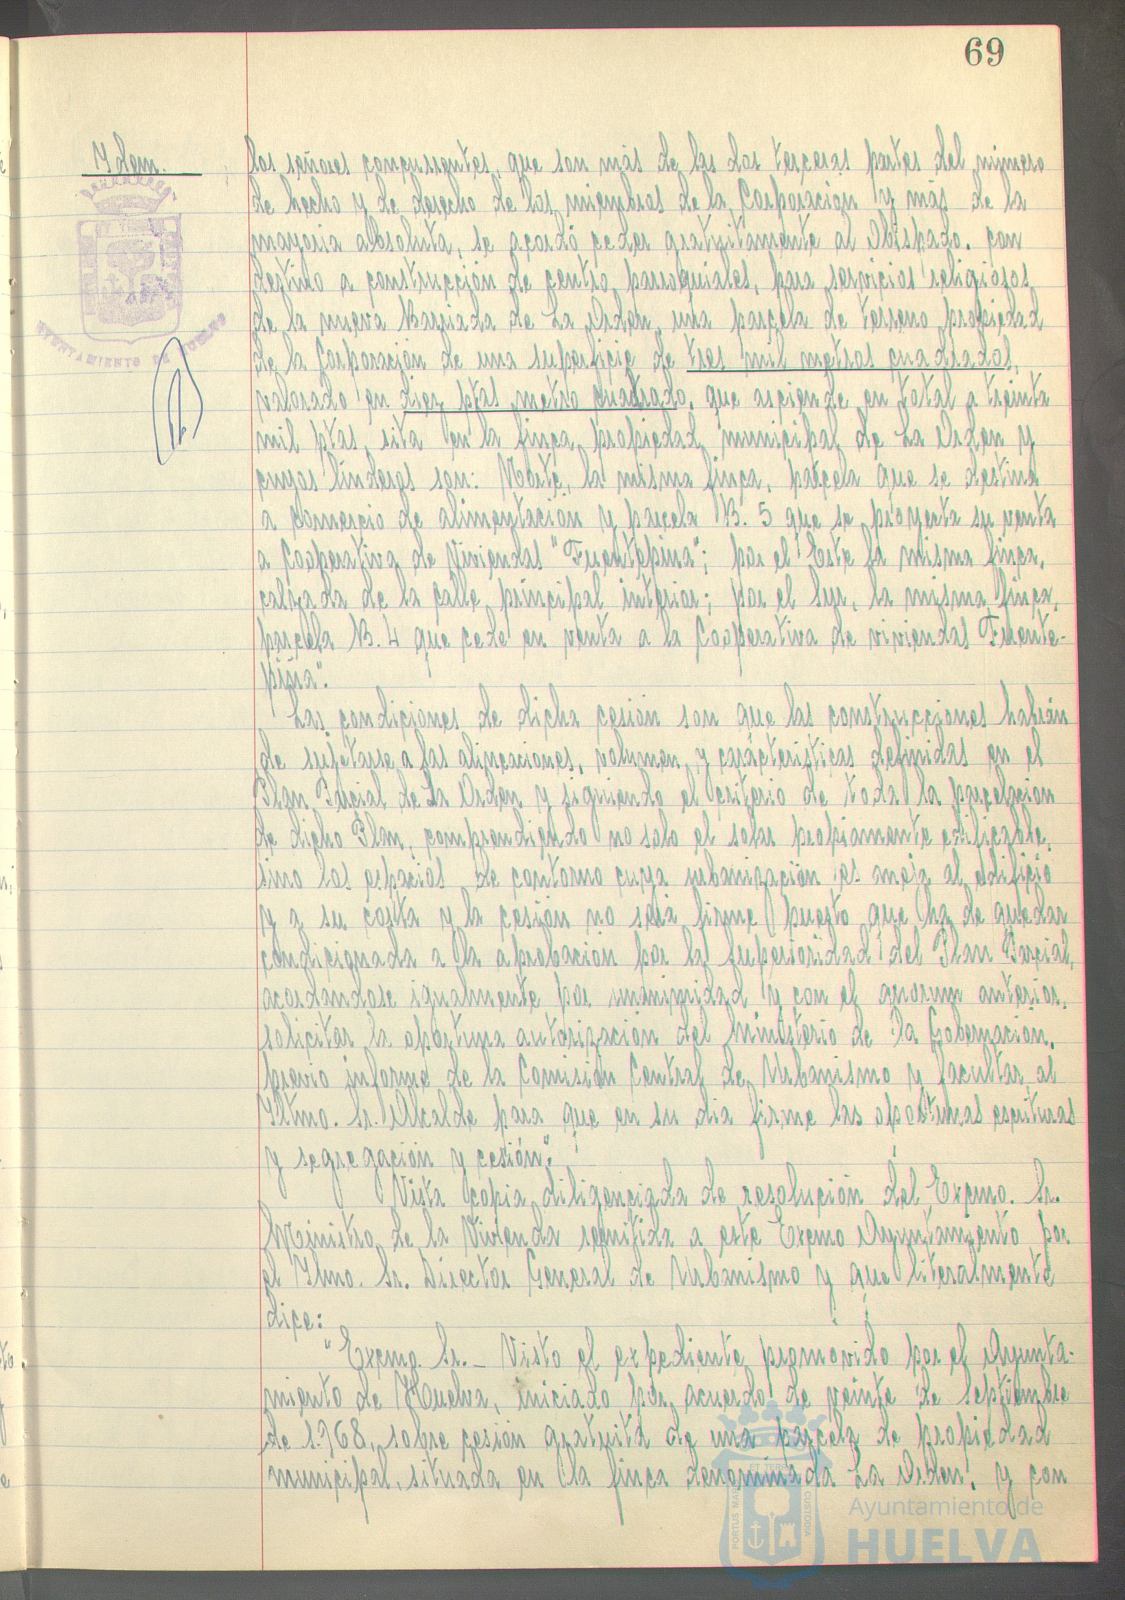 69
Idem.
los señores concurrentes, que son más de las dos terceras partes del número
de hecho y de derecho de los miembros de la Corporación y más de la
mayoria absoluta, se acordó ceder gratuitamente al Obispado, con
destino a construcción de centro parroquiales, para servicios religiosos
de la nueva Barriada de La Orden, una parcela de terreno propiedad
de la Corporación de una superficie de tres mil metros cuadrados,
valorado en diez ptas metro cuadrado, que asciende en total a treinta
mil ptas, sita en la finca propiedad municipal de La Orden y
cuyos linderos son: Norte, la misma finca, parcela que se destina
a comercio de alimentación y parcela B. 5 que se proyecta su venta
a Cooperativa de Viviendas "Fuentepiña"; por el Este la misma finca,
calzada de la calle principal interior; por el Sur, la misma finca,
parcela B. 4 que cede en venta a la Cooperativa de viviendas Fuente-
piña".
Las condiciones de dicha cesión son que las construcciones habrán
de sujetarse a las alineaciones, volumen, y características definidas en el
Plan Parcial de La Orden y siguiendo el criterio de toda la parcelación
de dicho Plan, comprendiendo no solo el solar propiamente edificable,
sino los espacios de contorno cuya urbanización es aneja al edificio
y a su costa y la cesión no será firme puesto que ha de quedar
condicionada a la aprobación por la Superioridad del Plan Parcial,
acordandose igualmente por unanimidad y con el quorum anterior,
solicitar la oportuna autorización del Ministerio de la Gobernación,
previo informe de la Comisión Central de Urbanismo y facultar al
Iltmo. Sr. Alcalde para que en su dia firme las oportunas escrituras
y segregación y cesión".
Vista copia diligenciada de resolución del Excmo. Sr.
Ministro de la Vivienda remitida a este Excmo Ayuntamiento por
el Iltmo. Sr. Director General de Urbanismo y que literalmente
dice:
"Excmo. Sr. - Visto el expediente promovido por el Ayunta-
miento de Huelva, iniciado por acuerdo de veinte de septiembre
de 1.968, sobre cesión gratuita de una parcela de propiedad
municipal, situada en la finca denominada La Orden, y con
AYUNTAMIENTO DE HUELVA
PORTUS MARIS ET TERRAE CUSTODIA
Ayuntamiento de
HUELVA